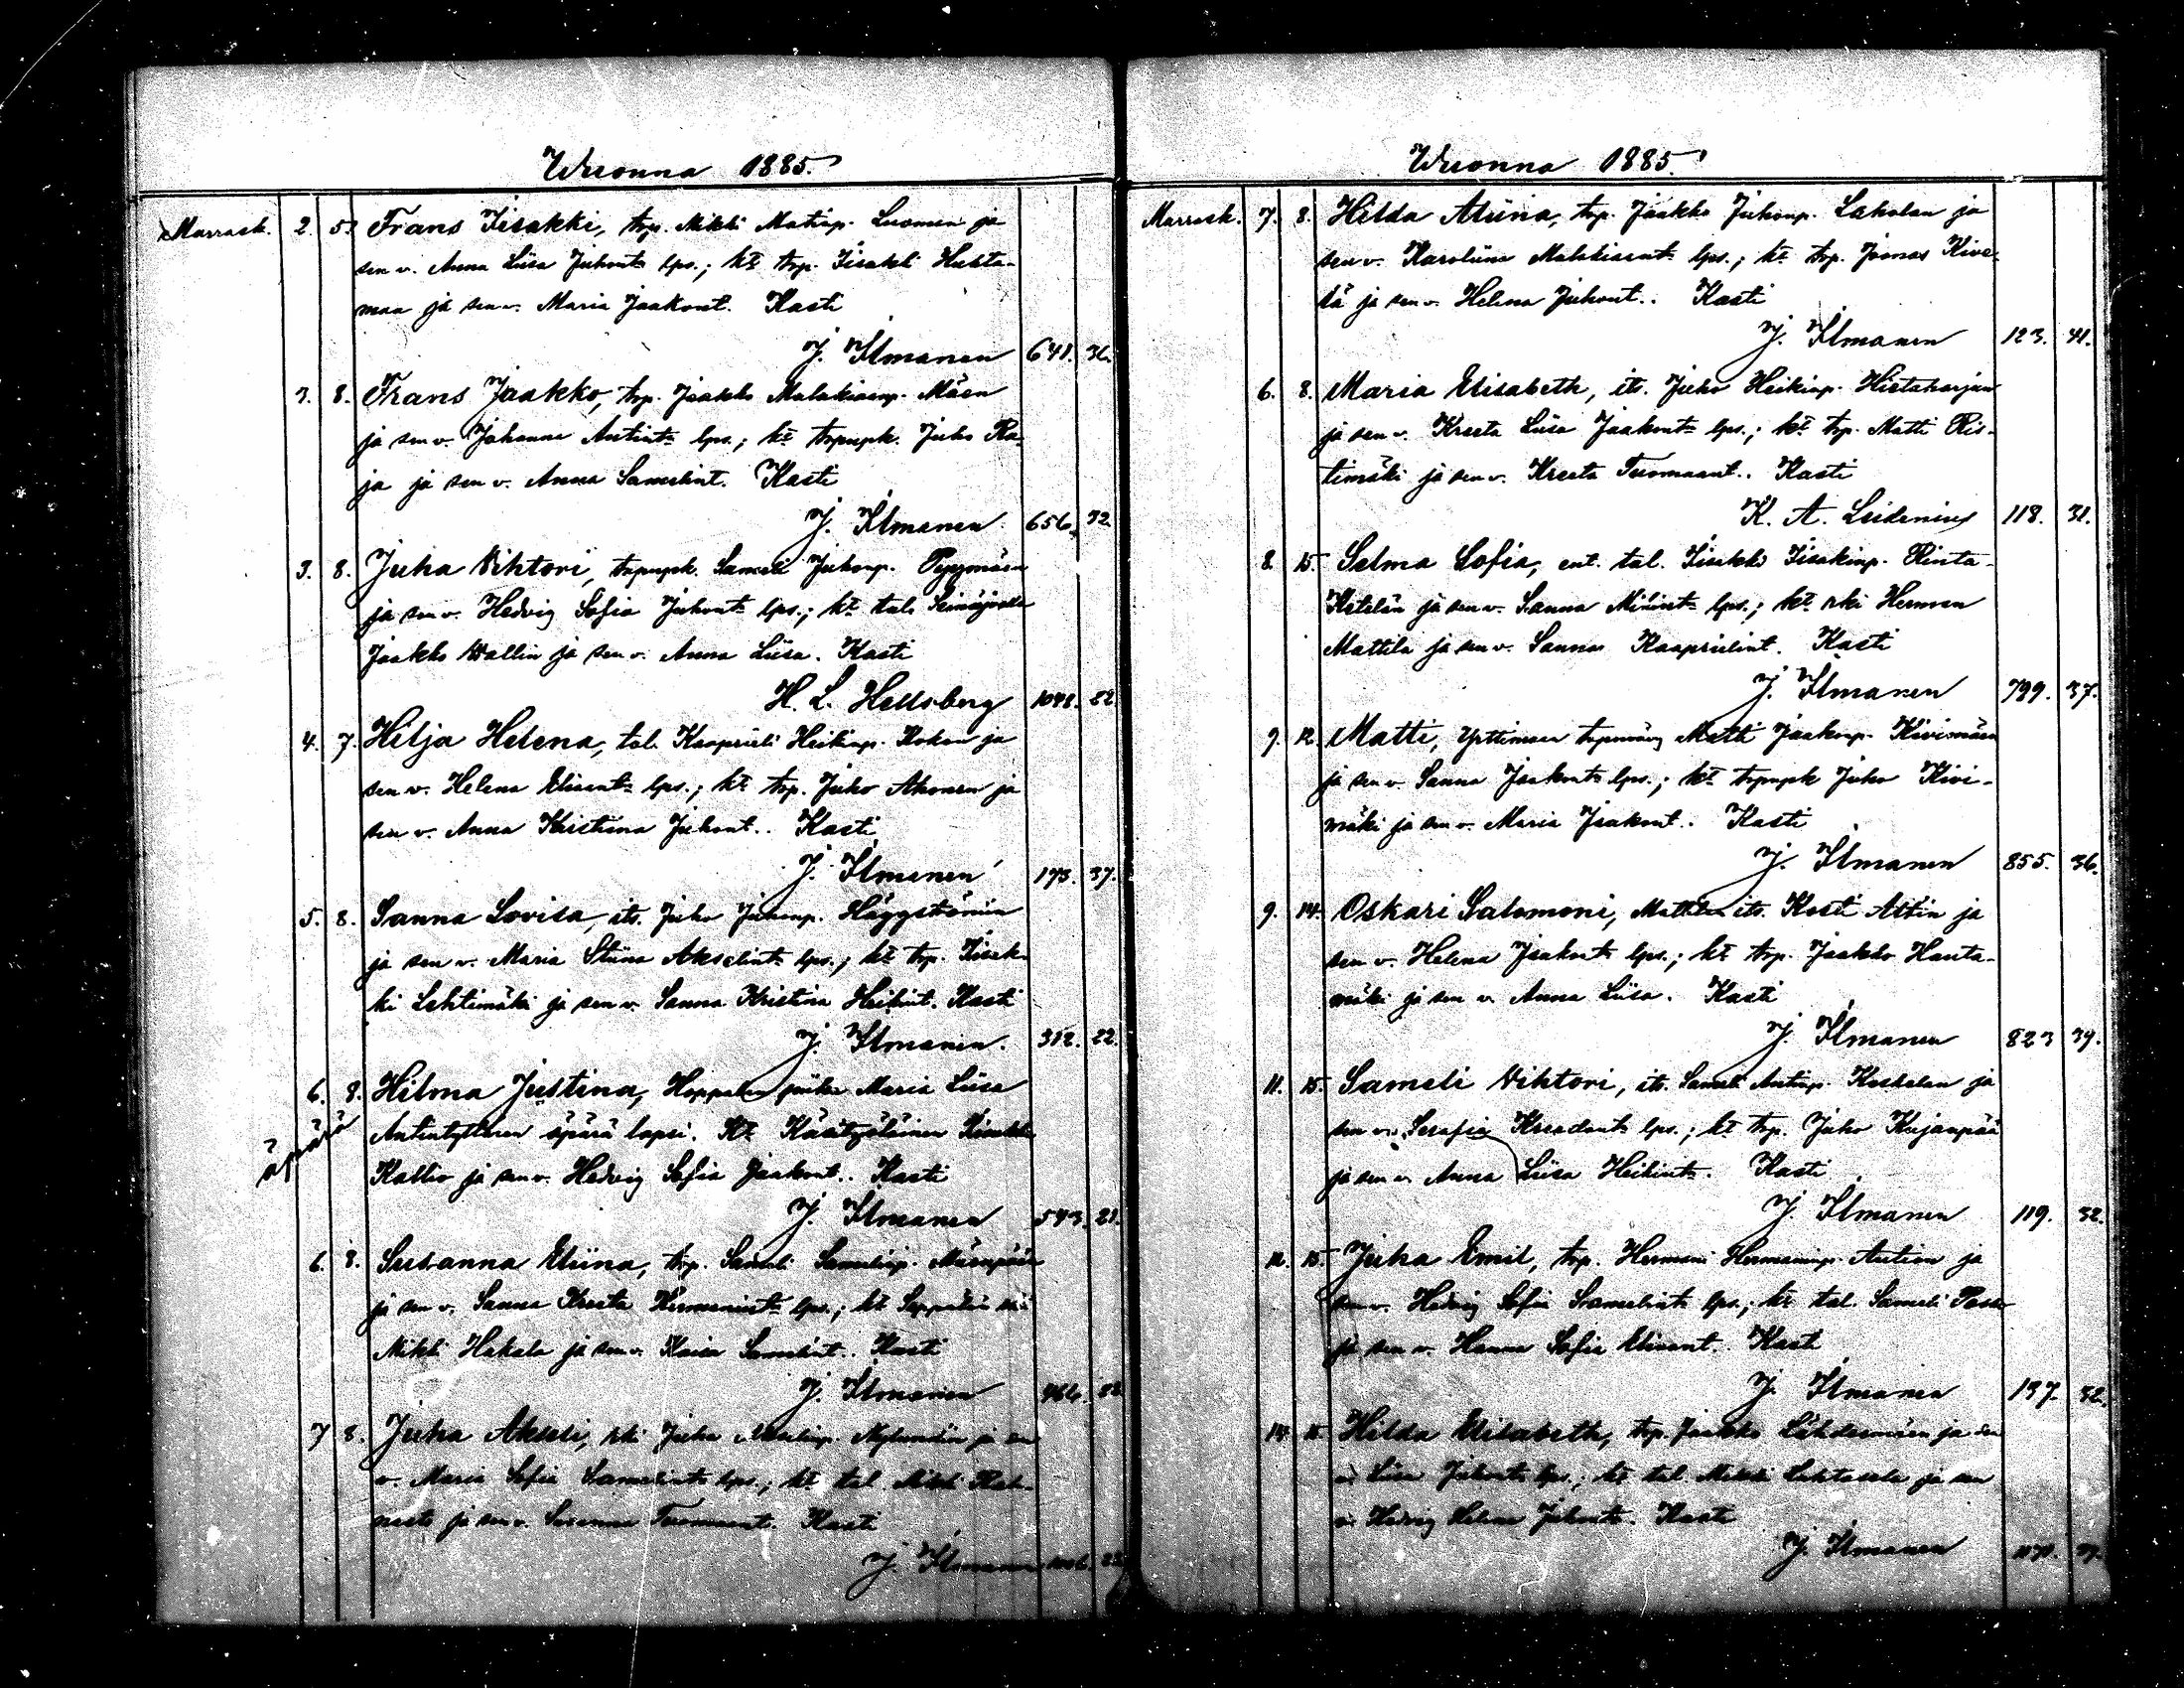 Wuonna 1885.
Marrask. 2. 5. Frans Iisakki, trp. Mikki Matinp. Luomen ja
sen v. Anna Liisa Juhont: lps.; kt: trp. Iisakki Huhta-
maa ja sen v. Maria Jaakont. Kasti
J. Ilmanen 641. 36.
3. 8. Frans Jaakko, trp. Jaakko Malakiaanp. Mäen
ja sen v. Johanna Antint: lps.; kt: trpnpk. Juho Ra-
ja ja sen v. Anna Samelint. Kasti
J. Ilmanen 656. 32.
3. 8. Juha Vihtori, trpnpk. Sameli Juhonp.
ja sen v. Hedvig Sofia Juhont: lps.; kt: tal. Seinäjoella
Jaakko Wallin ja sen v. Anna Liisa. Kasti
H. L. Hellsberg 1048. 52.
4. 7. Hilja Helena, tal. Kaaprieli Heikinp. Kokon ja
sen v. Helena Eliaant: lps.; kt: trp. Juho Ahonen ja
sen v. Anna Kristiina Juhont.. Kasti
J. Ilmanen 173. 37.
5. 8. Sanna Lovisa, its. Juho Juhonp. Häggströmin
ja sen v. Maria Stiina Akselint: lps.; kt: trp. Iisak-
ki Lehtimäki ja sen v. Sanna Kristina Heikint. Kasti
J. Ilmanen. 312. 22.
6. 8. Hilma Justina, Hoppalan piika Maria Liisa
äpärä Antintyttären äpärä lapsi. Kt: Käsityöläinen Iisakki
Kallio ja sen v. Hedvig Sofia Jaakont.. Kasti
J. Ilmanen 543. 21.
6. 8. Susanna Eliina, trp. Sameli Samelinp. Mäenpään
ja sen v. Sanna Kreeta Hermannint: lps.; kt: Seppälän
Mikki Hakala ja sen v. Kaisa Samelint.. Kasti
J. Ilmanen
7 8. Juha Akseli, rki Juha ja sen
v. Maria Sofia Samelint: lps.; kt: tal. Mikki
ja sen v. Susanna Tuomaant. Kasti
J. Ilmanen
Wuonna 1885.
Marrask. 7. 8. Hilda Aliina, trp. Jaakko Juhonp. Laholan ja
sen v. Karoliina Malakiaant: lps.; kt: trp. Joonas Kive-
lä ja sen v. Helena Juhont.. Kasti
J. Ilmanen 123. 41.
6. 8. Maria Elisabeth, its. Juho Heikinp. Hietaharjun
ja sen v. Kreeta Liisa Jaakont: lps.; kt: trp. Matti Ris-
timäki ja sen v. Kreeta Tuomaant.. Kasti
K. A. Leidenius 118. 31.
8. 15. Selma Sofia, ent. tal. Iisakki Iisakinp. Rinta-
Ketelän ja sen v. Sanna Miinint: lps.; kt: rki Herman
Mattila ja sen v. Sanna Kaaprielint. Kasti
J. Ilmanen 799. 37.
9. 12. Matti, Yrttimaa Matti Jaakonp. Kivimäen
ja sen v. Sanna Jaakont: lps.; kt: trpnpk Juho Kivi-
mäki ja sen v. Maria Jaakont.. Kasti
J. Ilmanen 855. 36.
9. 14. Oskari Salomoni, Mattilan its. Kosti Attin ja
sen v. Helena Jaakont: lps.; kt: trp. Jaakko Hauta-
mäki ja sen v. Anna Liisa. Kasti
J. Ilmanen 823 39.
11. 15. Sameli Vihtori, its. Sameli Antinp. Koskelan ja
sen v. Serafia lps.; kt: trp. Juho Kujanpää
ja sen v. Anna Liisa Heikint:. Kasti
J. Ilmanen 119. 32.
12. 15. Juha Emil, trp. Hermani Hermaninp. Autian ja
sen v. Hedvig Sofia Samelint: lps.; kt: tal. Sameli
ja sen v. Hanna Sofia Eliaant.. Kasti
J. Ilmanen 137. 32.
14. 15. Hilda Elisabeth, trp. Jaakko Lähdesmäen ja sen
v. Liisa Juhont: lps.; kt: tal. Mikki Lehtisalo ja sen
v. Hedvig Helena Juhont:. Kasti
J. Ilmanen